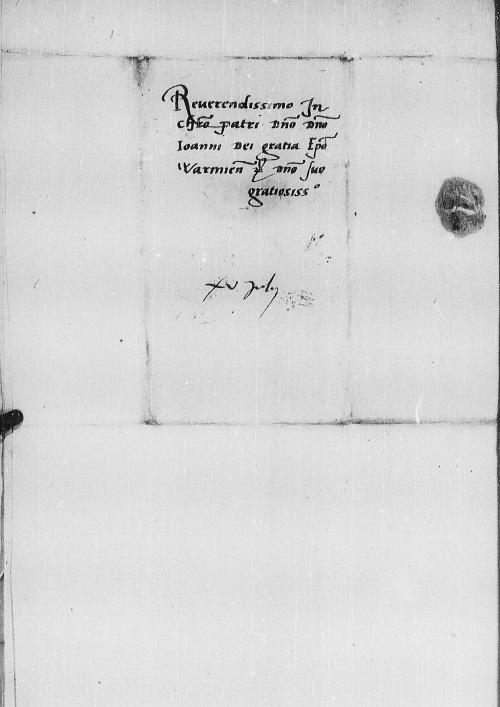 Reuerendissimo In
chr̄o patri dn̄o dn̄o
Ioanni dei gratia Ep̄o
Warmien̄ dn̄o suo
gratiosiss°
xv July